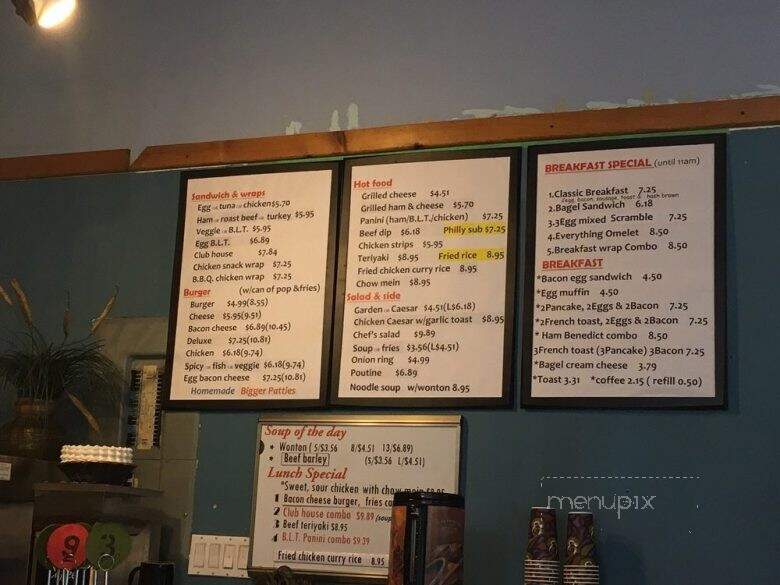 Sandwich & wraps
Egg or tuna or chicken $5.70
Ham or roast beef or turkey $5.95
Veggie or B.L.T. $5.95
Egg B.L.T. $6.89
Club house $7.84
Chicken snack wrap $7.25
B.B.Q. chicken wrap $7.25
Burger (w/can of pop &fries)
Burger $4.99(8.55)
Cheese $5.95(9.51)
Bacon cheese $6.89(10.45)
Deluxe $7.25(10.81)
Chicken $6.18(9.74)
Spicy or fish or veggie $6.18(9.74)
Egg bacon cheese $7.25(10.81)
Homemade Bigger Patties
Hot food
Grilled cheese $4.51
Grilled ham & cheese $5.70
Panini (ham/B.L.T./chicken) $7.25
Beef dip $6.18 Philly sub $7.25
Chicken strips $5.95
Teriyaki $8.95 Fried rice 8.95
Fried chicken curry rice 8.95
Chow mein $8.95
Salad & side
Garden or Caesar $4.51(L$6.18)
Chicken Caesar w/garlic toast $8.95
Chef's salad $9.89
Soup or fries $3.56(L$4.51)
Onion ring $4.99
Poutine $6.89
Noodle soup w/wonton 8.95
BREAKFAST SPECIAL (until 11am)
1.Classic Breakfast 7.25
2egg, bacon, sausage, toast & hash brown
2.Bagel Sandwich 6.18
3.3Egg mixed Scramble 7.25
4.Everything Omelet 8.50
5.Breakfast wrap Combo 8.50
BREAKFAST
*Bacon egg sandwich 4.50
*Egg muffin 4.50
*2Pancake, 2Eggs & 2Bacon 7.25
*2French toast, 2Eggs & 2Bacon 7.25
* Ham Benedict combo 8.50
3French toast (3Pancake) 3Bacon 7.25
*Bagel cream cheese 3.79
*Toast 3.31 *coffee 2.15 ( refill 0.50)
Soup of the day
* Wonton ( 5/$3.56 8/$4.51 13/$6.89)
* Beef barley (s/$3.56 L/$4.51)
Lunch Special
*Sweet, sour chicken with chow mein
1 Bacon cheese burger, fries
2 Club house combo $9.89 (soup
3 Beef teriyaki $8.95
4 B.L.T. Panini combo $9.39
Fried chicken curry rice 8.95
9 3
menupix